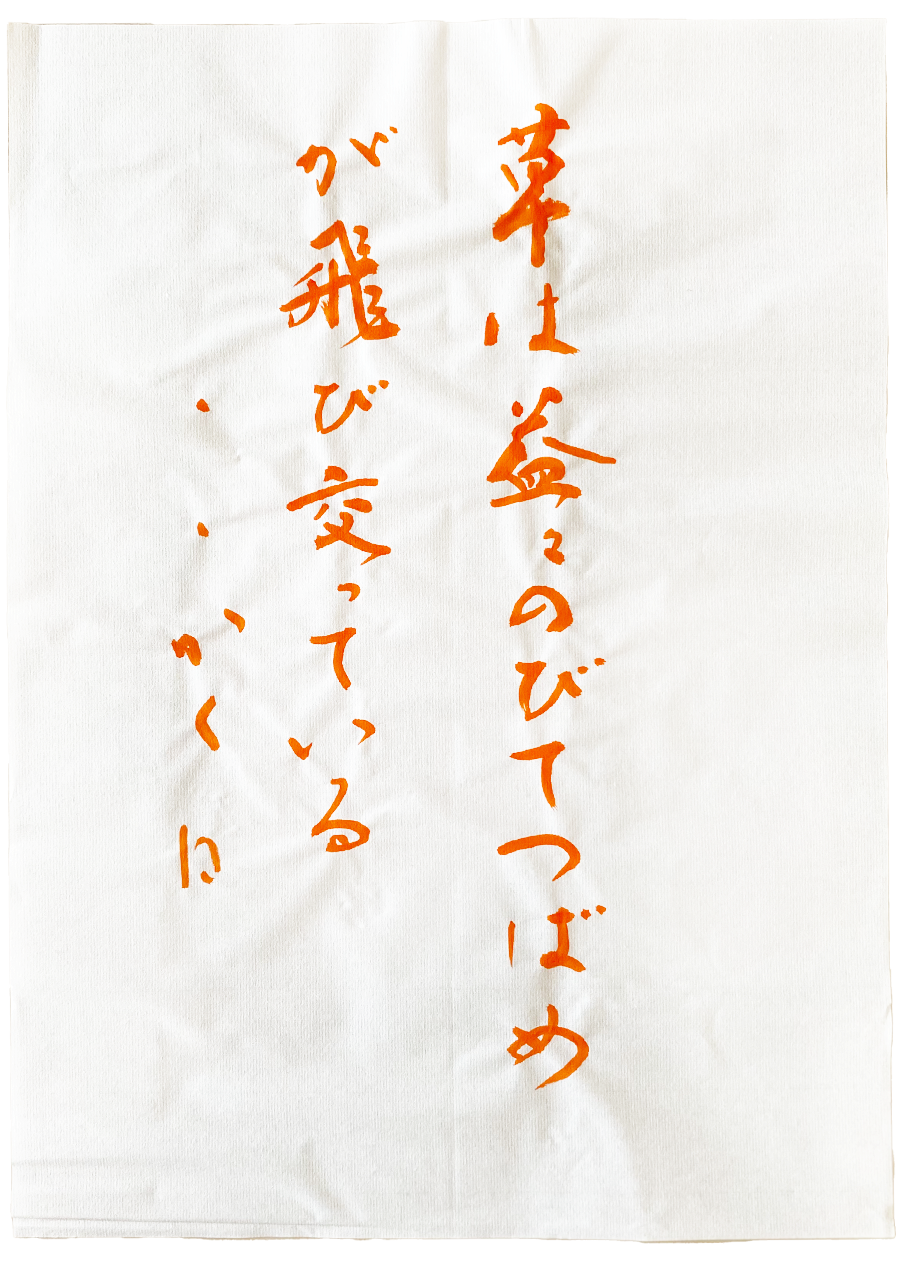 草は益々のびてつばめ
が飛び交っている
・・かく日